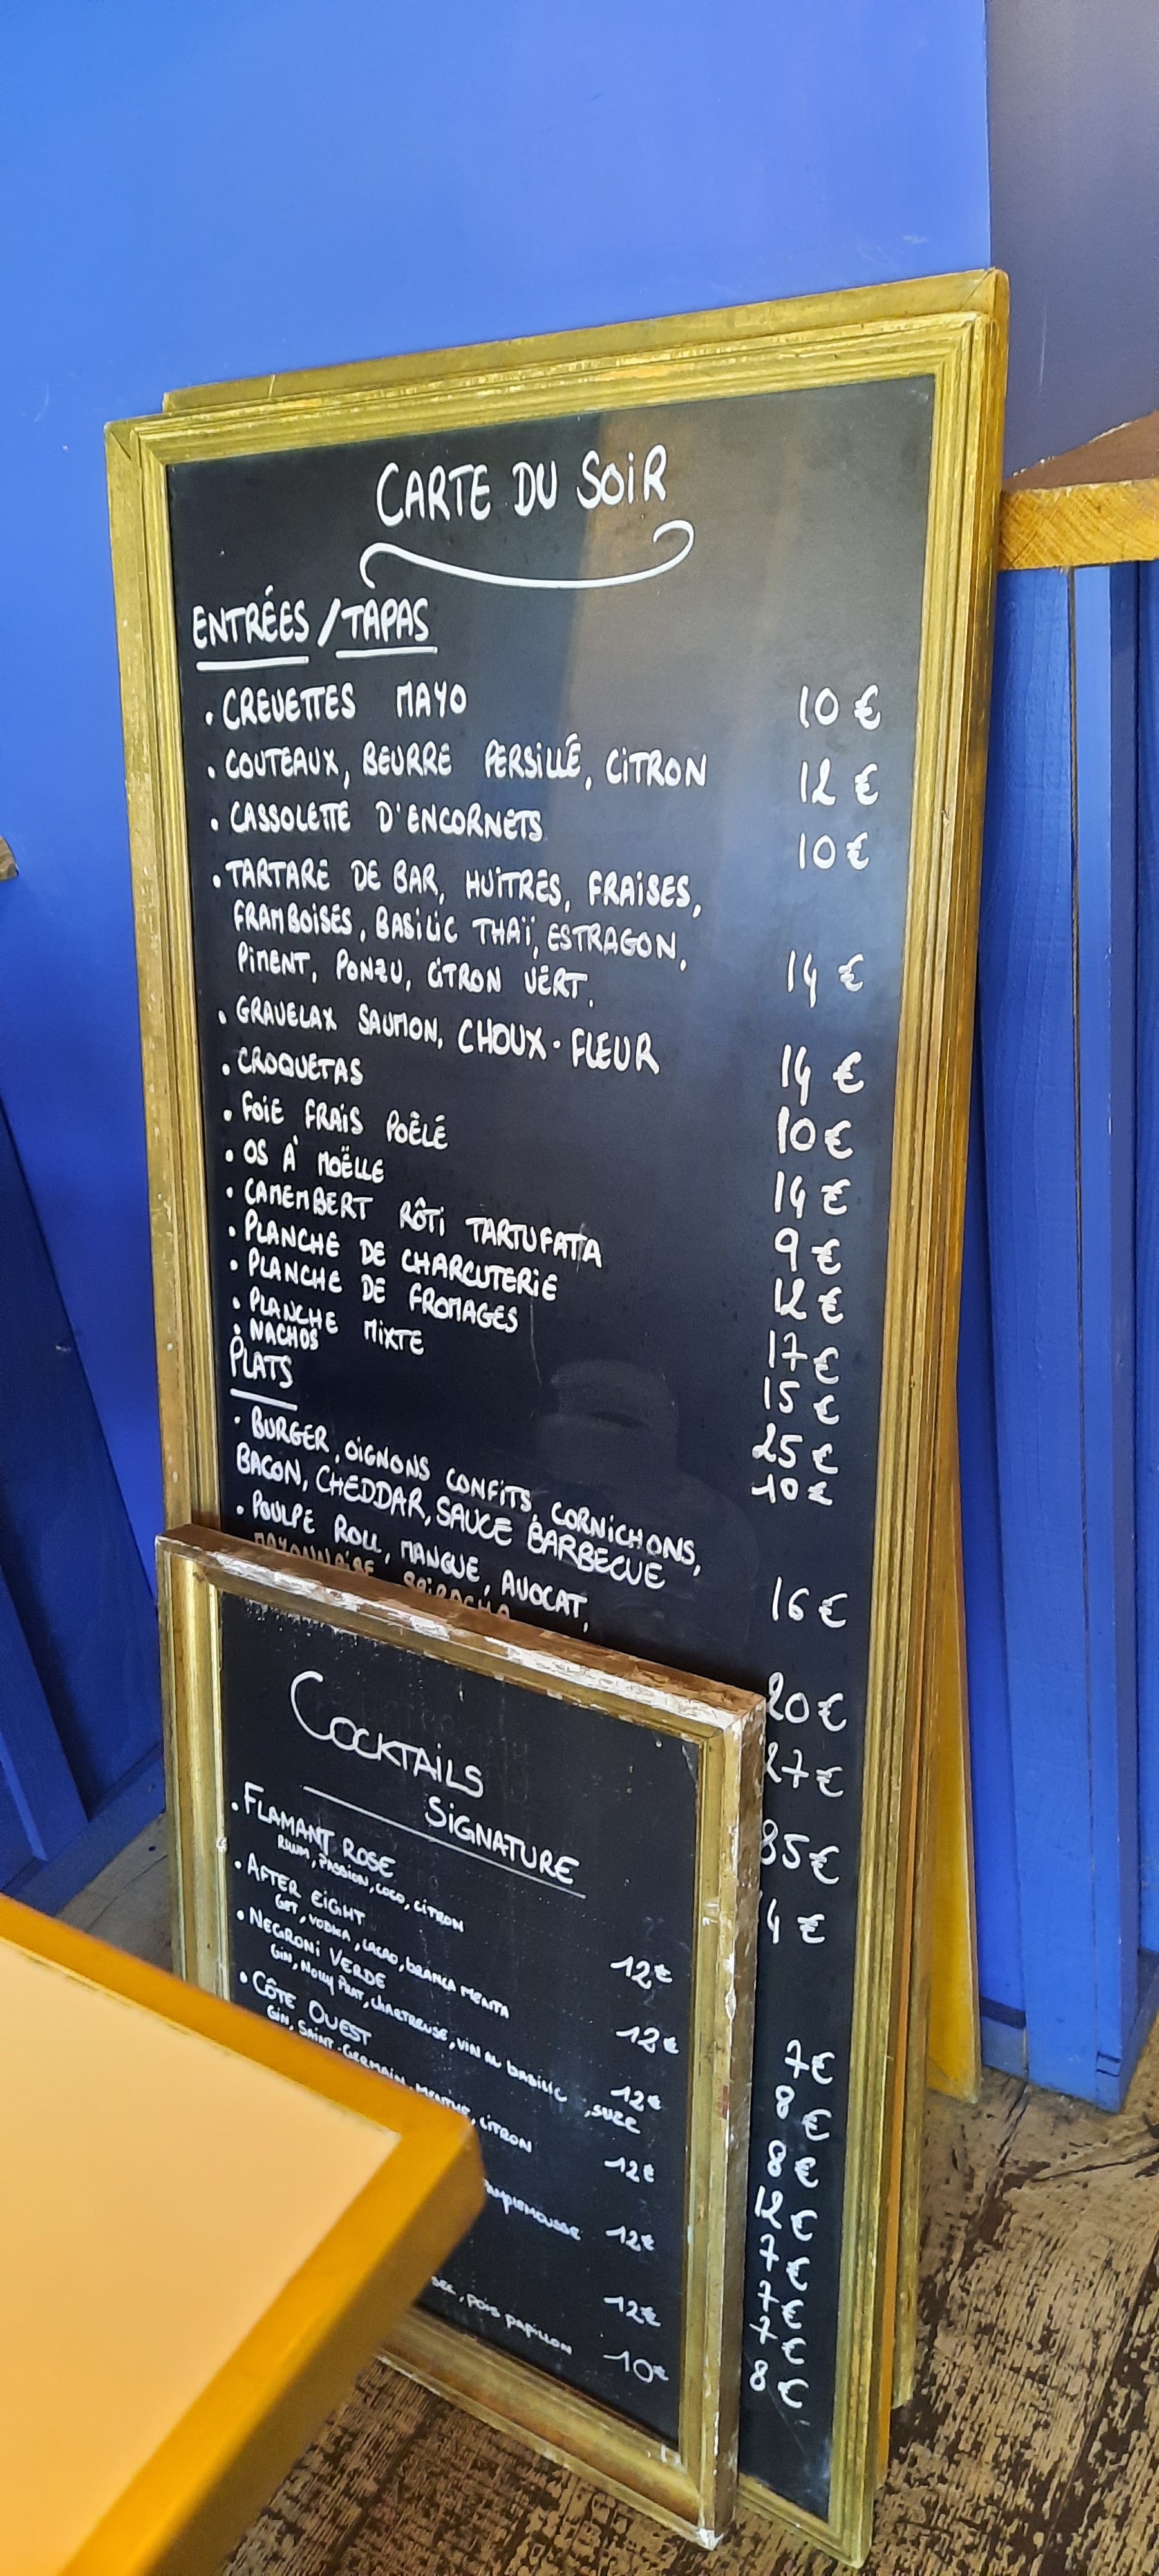 CARTE DU SOIR
ENTRÉES / TAPAS
. CREVETTES MAYO 10 €
. COUTEAUX, BEURRE PERSILLÉ, CITRON 12 €
. CASSOLETTE D'ENCORNETS 10 €
. TARTARE DE BAR, HUITRES, FRAISES,
FRAMBOISES, BASILIC THAÏ, ESTRAGON,
PIMENT, PONZU, CITRON VERT. 14 €
. GRAVELAX SAUMON, CHOUX-FLEUR 14 €
. CROQUETAS 10 €
. FOIE FRAIS POÊLÉ 14 €
. OS À MOËLLE 9 €
. CAMEMBERT RÔTI TARTUFATA 12 €
. PLANCHE DE CHARCUTERIE 17 €
. PLANCHE DE FROMAGES 15 €
. PLANCHE MIXTE 25 €
. NACHOS 10 €
PLATS
. BURGER, OIGNONS CONFITS, CORNICHONS,
BACON, CHEDDAR, SAUCE BARBECUE 16 €
. POULPE ROLL, MANGUE, AVOCAT,
MAYONNAISE SRIRACHA 20 €
27 €
85 €
4 €
7 €
8 €
8 €
12 €
7 €
7 €
7 €
8 €
COCKTAILS
SIGNATURE
. FLAMANT ROSE
RHUM, PASSION, COCO, CITRON 12 €
. AFTER EIGHT
GET, VODKA, CACAO, BRANCA MENTA 12 €
. NEGRONI VERDE
GIN, NOILLY PRAT, CHARTREUSE, VIN AU BASILIC, SUZE 12 €
. CÔTE OUEST
GIN, SAINT-GERMAIN, MENTHE, CITRON 12 €
PAMPLEMOUSSE 12 €
12 €
, POIS PAPILLON 10 €